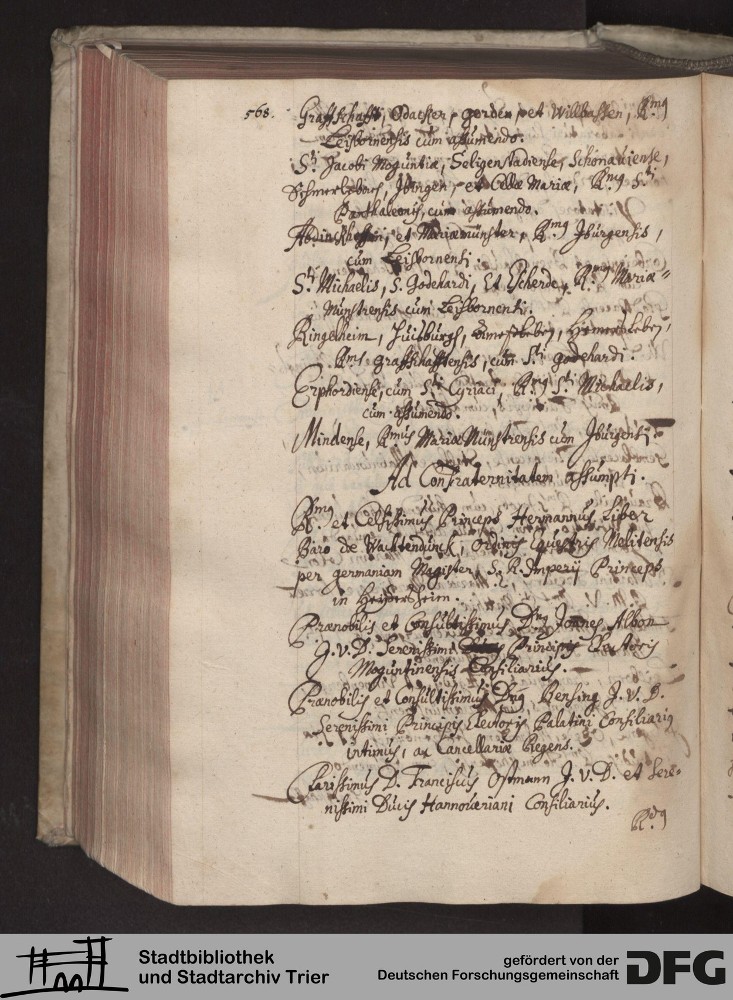 568.
Graffschafft, Odacker, gerden et Willbassen, Rmg
Leisbornensis cum assumendo.
Sti Jacobi Moguntiæ, Seligenstadiense, Schonaviense,
et Cellæ Mariæ, Rmg Sti
Panthaleonis, cum assumendo.
et Mariæmünster, Rmg Jburgensis,
cum Leisbornensi.
Sti Michaelis, S. Godehardi, Et Escherde, Rmg Mariæ-
Münstrensis cum Leisbornensi.
Ringelheim, Huisburgh,
Rmg graffschafftensis, cum Sti godehardi.
Erphordiense, cum Sti Cyriaci, Rmg Sti Michaelis,
cum assumendo.
Mindense, Rmus Mariæ Münstrensis cum Jburgensi.
Ad Confraternitatem assumpti.
Rmg et Celsissimus Princeps Hermannus Liber
Baro de Wachtendunck, Ordinis Equestris Melitensis
per germaniam Magister, S. R. Imperij Princeps
in Heijtersheim.
Prænobilis et Consultissimus Dng Joannes Albon
J. V. D. Serenissimi Principis Electoris
Moguntinensis Consiliarius.
Prænobilis et Consultissimus Dng Hensing J. V. D.
Serenissimi Principis Electoris Palatini Consiliarig
intimus, ac Cancellariæ Regens.
Clarissimus D. Franciscus Ostmann J. V. D. et Sere-
nissimi Ducis Hannoveriani Consiliarius.
Rdg
Stadtbibliothek
und Stadtarchiv Trier
gefördert von der
Deutschen Forschungsgemeinschaft
DFG